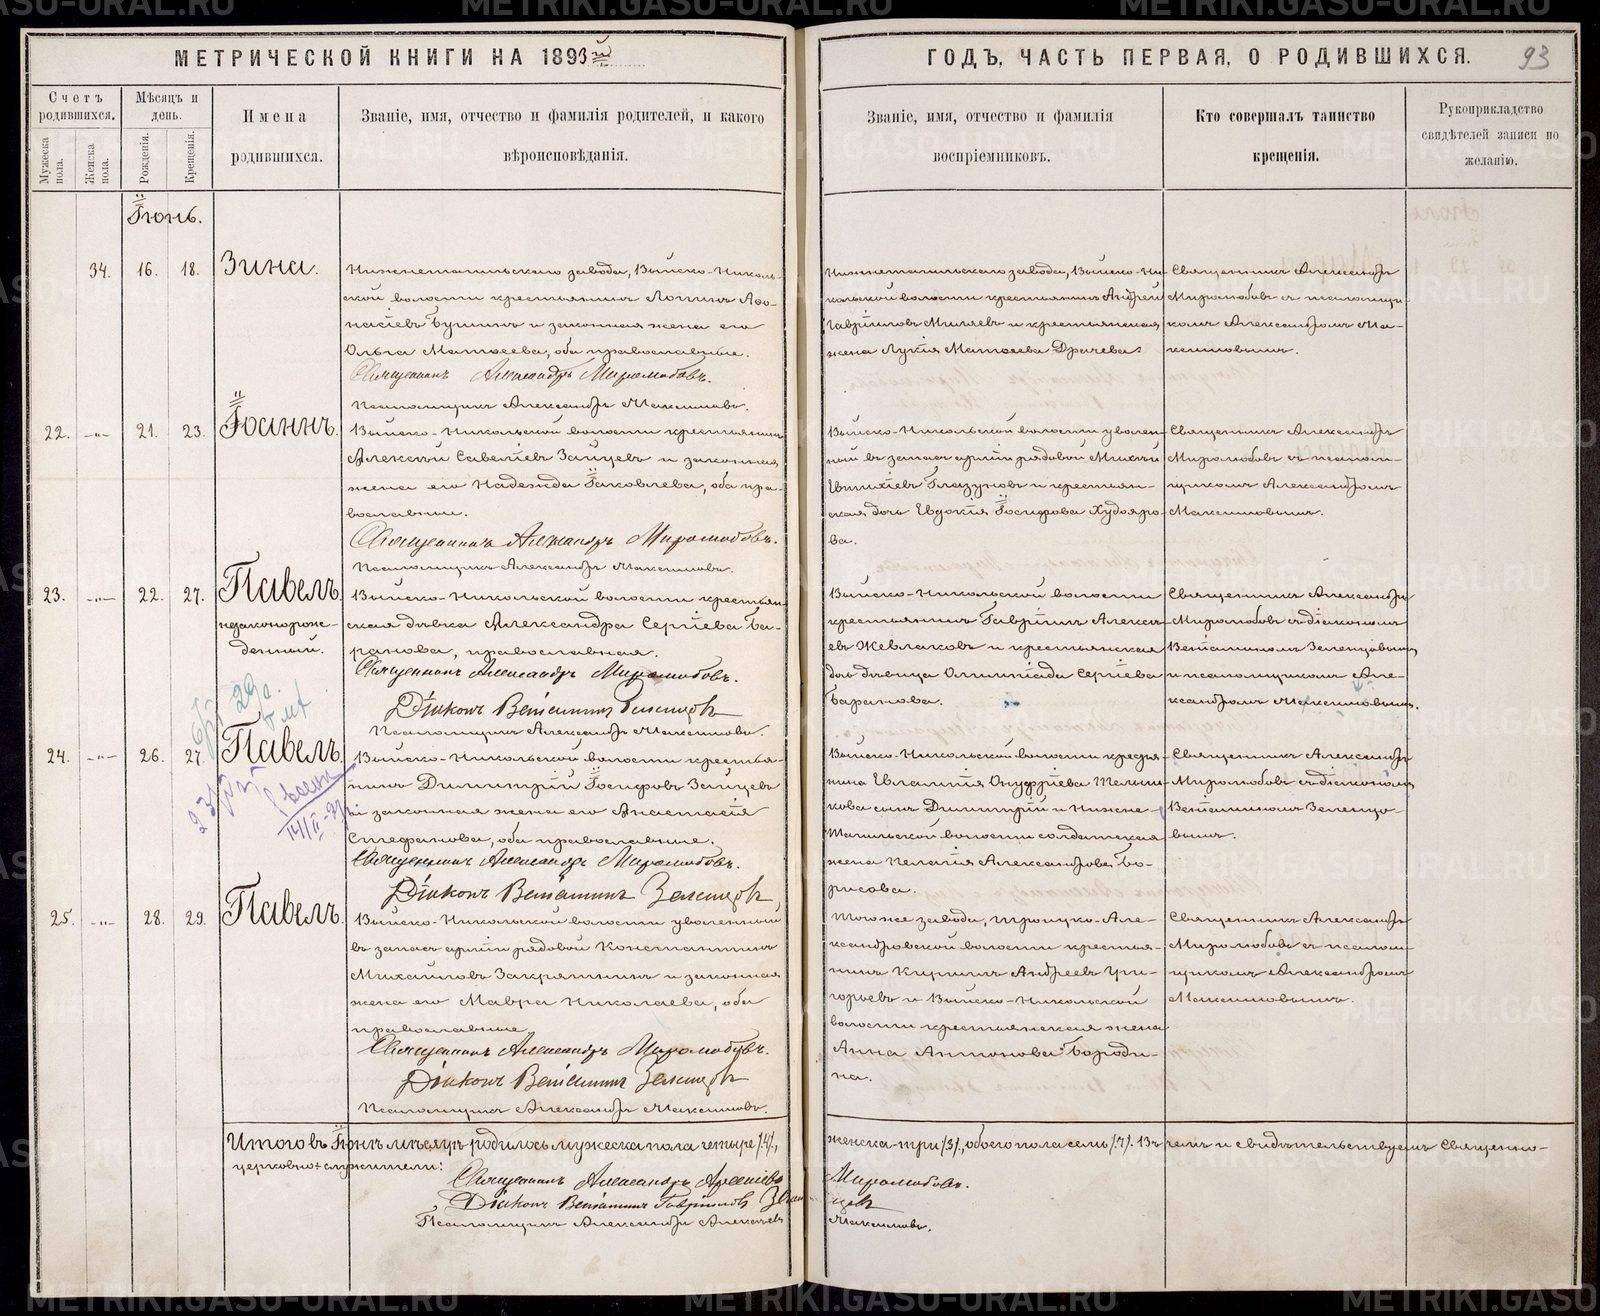 МЕТРИЧЕСКОЙ КНИГИ НА 1893й
ГОДЪ, ЧАСТЬ ПЕРВАЯ, О РОДИВШИХСЯ.
93
Счетъ родившихся.
Мѣсяцъ и день.
Имена родившихся.
Званіе, имя, отчество и фамилія родителей, и какого вѣроисповѣданія.
Званіе, имя, отчество и фамилія воспріемниковъ.
Кто совершалъ таинство крещенія.
Рукоприкладство свидѣтелей записи по желанію.
Мужеска пола.
Женска пола.
Рожденія.
Крещенія.
Іюнь.
34. 16. 18. Зина.
Нижнетагильскаго завода, Выйско-Николь-
ской волости крестьянинъ Логинъ Аѳо-
насіевъ и законная жена его
Ольга Матѳеева, оба православные.
Священникъ Александръ Миролюбовъ.
Псаломщикъ Александръ Максимовъ.
Нижнетагильскаго завода, Выйско-Ни-
кольской волости крестьянинъ Андрей
Гавріиловъ Миляевъ и крестьянская
жена Лукія Матѳеева Драчева.
Священникъ Александръ
Миролюбовъ съ псаломщи-
комъ Александромъ Ма-
ксимовымъ.
22. -"- 21. 23. Іоаннъ.
Выйско-Никольской волости крестьянинъ
Алексѣй Савеліевъ Зайцевъ и законная
жена его Надежда Іаковлева, оба пра-
вославные.
Священникъ Александръ Миролюбовъ.
Псаломщикъ Александръ Максимовъ.
Выйско-Никольской волости уволен-
ный въ запасъ арміи рядовой Михѣй
Евтихіевъ Глазуновъ и крестьян-
ская дочь Евдокія Іосифова Худояро-
ва.
Священникъ Александръ
Миролюбовъ съ псалом-
щикомъ Александромъ
Максимовымъ.
23. -"- 22. 27. Павелъ.
незаконорож-
денный.
Выйско-Никольской волости крестьян-
ская дѣвка Александра Сергіева Ба-
ранова, православная.
Священникъ Александръ Миролюбовъ.
Діаконъ Веніаминъ Зеленцовъ
Псаломщикъ Александръ Максимовъ.
Выйско-Никольской волости
крестьянинъ Гавріилъ Алексѣ-
евъ Жевлаковъ и крестьянская
дочь дѣвица Олимпіада Сергіева
Баранова.
Священникъ Александръ
Миролюбовъ съ діакономъ
Веніаминомъ Зеленцовымъ
и псаломщикомъ Але-
ксандромъ Максимовымъ.
24. -"- 26. 27. Павелъ.
Выйско-Никольской волости крестья-
нинъ Димитрій Іосифовъ Зайцевъ
и законная жена его Анастасія
Стефанова, оба православные.
Священникъ Александръ Миролюбовъ.
Діаконъ Веніаминъ Зеленцовъ
Выйско-Никольской волости крестья-
нина Евлампія Онуфріева Мельни-
кова сынъ Димитрій и Нижне-
Тагильской волости солдатская
жена Пелагія Александрова Бо-
рисова.
Священникъ Александръ
Миролюбовъ съ діакономъ
Веніаминомъ Зеленцо-
вымъ.
25. -"- 28. 29. Павелъ.
Выйско-Никольской волости уволенный
въ запасъ арміи рядовой Константинъ
Михаиловъ Закрятинъ и законная
жена его Мавра Николаева, оба
православные.
Священникъ Александръ Миролюбовъ.
Діаконъ Веніаминъ Зеленцовъ
Псаломщикъ Александръ Максимовъ.
Того же завода, Троицко-Але-
ксандровской волости крестья-
нинъ Кириллъ Андреевъ Гри-
горьевъ и Выйско-Никольской
волости крестьянская жена
Анна Антонова Бороди-
на.
Священникъ Александръ
Миролюбовъ съ псалом-
щикомъ Александромъ
Максимовымъ.
Итого въ Іюнѣ мѣсяцѣ родилось мужеска пола четыре /4/, женска-три /3/, обоего пола семь /7/. Въ чемъ и свидѣтельствуемъ Священно-
церковно-служители:
Священникъ Александръ Миролюбовъ.
Діаконъ Веніаминъ Гавріиловъ Зеленцовъ
Псаломщикъ Александръ Алексѣевъ Максимовъ.
METRIKI.GASO-URAL.RU